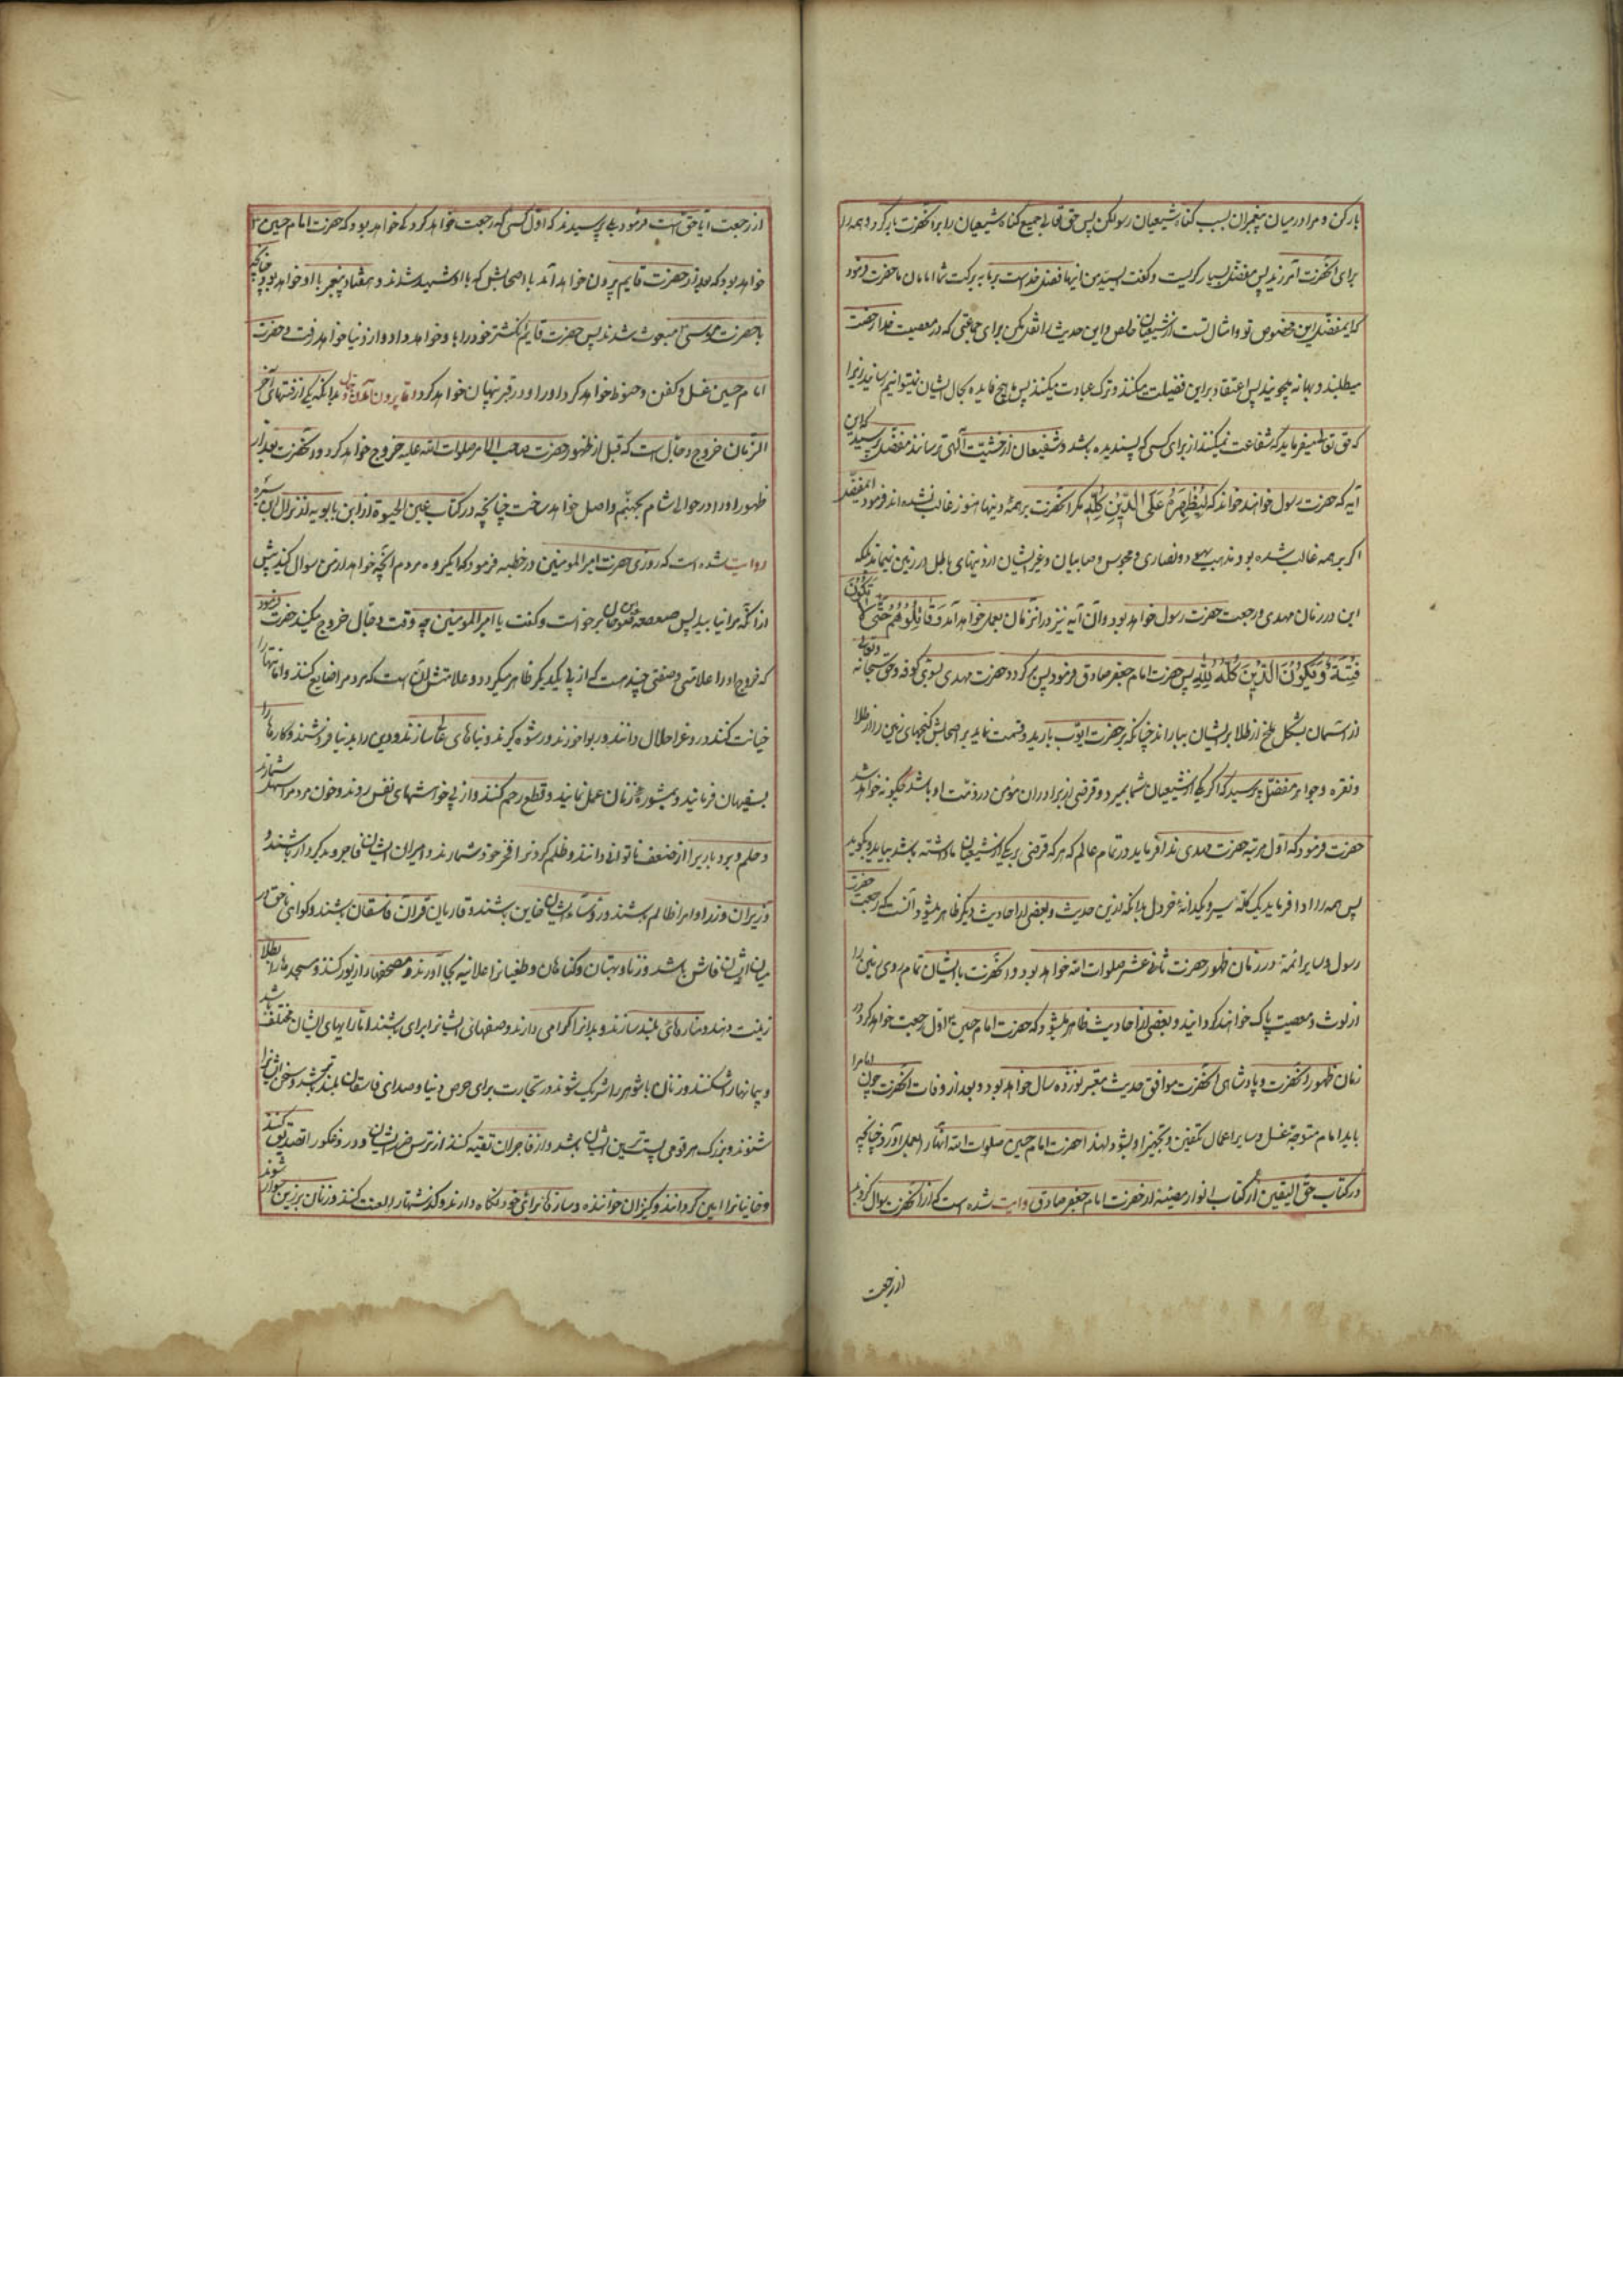 بار کن و مرا در میان پیغمبران بسبب گناه شیعیان رسوا مکن پس حق تعالی جمیع گناه شیعیان را بر آنحضرت بار کرد و همه را
برای آنحضرت آمرزید پس مفضل بسیار گریست و گفت ای سید من اینها فضل خداست بر ما به برکت شما امامان ما حضرت فرمود
که ای مفضل این مخصوص تو و امثال تست از شیعیان خالص و این حدیث را نقل مکن برای جماعتی که در معصیت خدا رخصت
میطلبند و بهانه میجویند پس اعتماد بر این فضیلت میکنند و ترک عبادت میکنند پس ما هیچ فایده بحال ایشان نمیتوانیم رسانید زیرا
که حق تعالی میفرماید که شفاعت نمیکنند از برای کسی که پسندیده باشد و شفیعان از خشیت الهی ترسانند مفضل پرسید که این
آیه که حضرت رسول خوانند خواند که لِیُظْهِرَهُ عَلَی الدِّینِ کُلِّهِ مگر آنحضرت بر همه دینها هنوز غالب نشده‌اند فرمود ای مفضل
اگر بر همه غالب شده بود مذهب یهود و نصاری و مجوس و صابیان و غیر ایشان از دینهای باطل در زمین نمیماند بلکه
این در زمان مهدی و رجعت حضرت رسول خواهد بود و آن آیه نیز در آنزمان بعمل خواهد آمد وَقَاتِلُوهُمْ حَتَّی لَا تَکُونَ
فِتْنَةٌ وَیَکُونَ الدِّینُ کُلُّهُ لِلّٰهِ پس حضرت امام جعفر صادق فرمود پس برگردد حضرت مهدی بسوی کوفه و حق سبحانه و تعالی
از آسمان بشکل ملخ از طلا بر ایشان بباراند چنانکه بر حضرت ایوب بارید و قسمت نماید بر اصحابش گنجهای زمین را از طلا
و نقره و جواهر مفضل پرسید که اگر یکی از شیعیان شما بمیرد و قرضی از برادران مؤمن در ذمت او باشد چگونه خواهد شد
حضرت فرمود که اول مرتبه حضرت مهدی ندا فرماید در تمام عالم که هر که قرضی بر یکی از شیعیان ما داشته باشد بیاید و بگوید
پس همه را ادا فرماید یک کله سیر و یکدانه خردل بدانکه ازین حدیث و بعضی از احادیث دیگر ظاهر میشود آنست که رجعت حضرت
رسول و سایر ائمه در زمان ظهور حضرت ثانی عشر صلوات الله خواهد بود و آنحضرت با ایشان تمام روی زمین را
از لوث و معصیت پاک خواهند گردانید و بعضی از احادیث ظاهر میشود که حضرت امام حسین ع اول رجعت خواهد کرد در
زمان ظهور آنحضرت و پادشاهی آنحضرت موافق حدیث معتبر نوزده سال خواهد بود و بعد از وفات آنحضرت چون امام را
باید امام متوجه غسل و سایر اعمال تکفین و تجهیز او بشود لهذا حضرت امام حسین صلوات الله آنها را بعمل آورد چنانچه
در کتاب حق الیقین از کتاب انوار مضیئه از حضرت امام جعفر صادق روایت شده است که از آنحضرت سوال کردند
از رجعت
از رجعت آیا حق است فرمود بلی پرسیدند که اول کسی که رجعت خواهد کرد که خواهد بود که حضرت امام حسین ع
خواهد بود که بعد از حضرت قایم بیرون خواهد آمد با اصحابش که با او شهید شدند و هفتاد پیغمبر با او خواهد بود چنانچه
با حضرت موسی مبعوث شدند پس حضرت قایم انگشتر خود را باو خواهد داد و از دنیا خواهد رفت و حضرت
امام حسین غسل و کفن و حنوط خواهد کرد او را و در قبر پنهان خواهد کرد بدانکه یکی از فتنهای آخر
الزمان خروج دجال است که قبل از ظهور حضرت صاحب الامر صلوات الله علیه خروج خواهد کرد و آنحضرت بعد از
ظهور او را در حوالی شام بجهنم واصل خواهد ساخت چنانچه در کتاب عین الحیوة از ابن بابویه از نزال ابن سبره
روایت شده است که روزی حضرت امیرالمومنین در خطبه فرمود که ایگروه مردم آنچه خواهید از من سوال کنید پیش
از آنکه مرا نیابید پس صعصعه بن صوحان برخواست و گفت یا امیرالمومنین چه وقت دجال خروج میکند حضرت فرمود
که خروج او را علامتی و صفتی چند هست که از پی یکدیگر ظاهر میگردد و علامتش آن است که مردم نماز ضایع کنند و امانتها را
خیانت کنند و دروغ را حلال دانند و ربوا خورند و رشوه گیرند و بناهای عالی سازند و دین را بدنیا فروشند و کارها را
بسفیهان فرمانید و بمشوره زنان عمل نمایند و قطع رحم کنند و از پی خواهشهای نفس روند و خون مردم را سهل شمارند
و حلم و بردباری را از ضعف و ناتوانی دانند و ظلم کردن را فخر خود شمارند و امیران ایشان فاجر و بدکردار باشند و
وزیران و زرا و امرا ظالم باشند و رؤسای ایشان خاین باشند و قاریان قرآن فاسقان باشند و گواهی ناحق در
میان ایشان فاش باشد و زنا و بهتان و گناهان و طغیان را علانیه بجا آورند و مصحفها را زیور کنند و مسجدها را بطلا
زینت دهند و منارهای بلند سازند و بدان را گرامی دارند و صفهای ایشان برابر باشند اما رایهای ایشان مختلف باشد
و پیمانها را شکنند و زنان با شوهر را شریک شوند در تجارت برای حرص دنیا و صدای فاسقان بلند باشد و سخن ایشان را
شنوند و بزرگ هر قومی پست ترین ایشان باشد و از فاجران تقیه کنند از ترس ضرر ایشان و دروغگو را تصدیق کنند
و خاینان را امین گردانند و کنیزان خواننده و سازها برای خود نگاه دارند و گذشتها را لعنت کنند و زنان بر زین سوار شوند